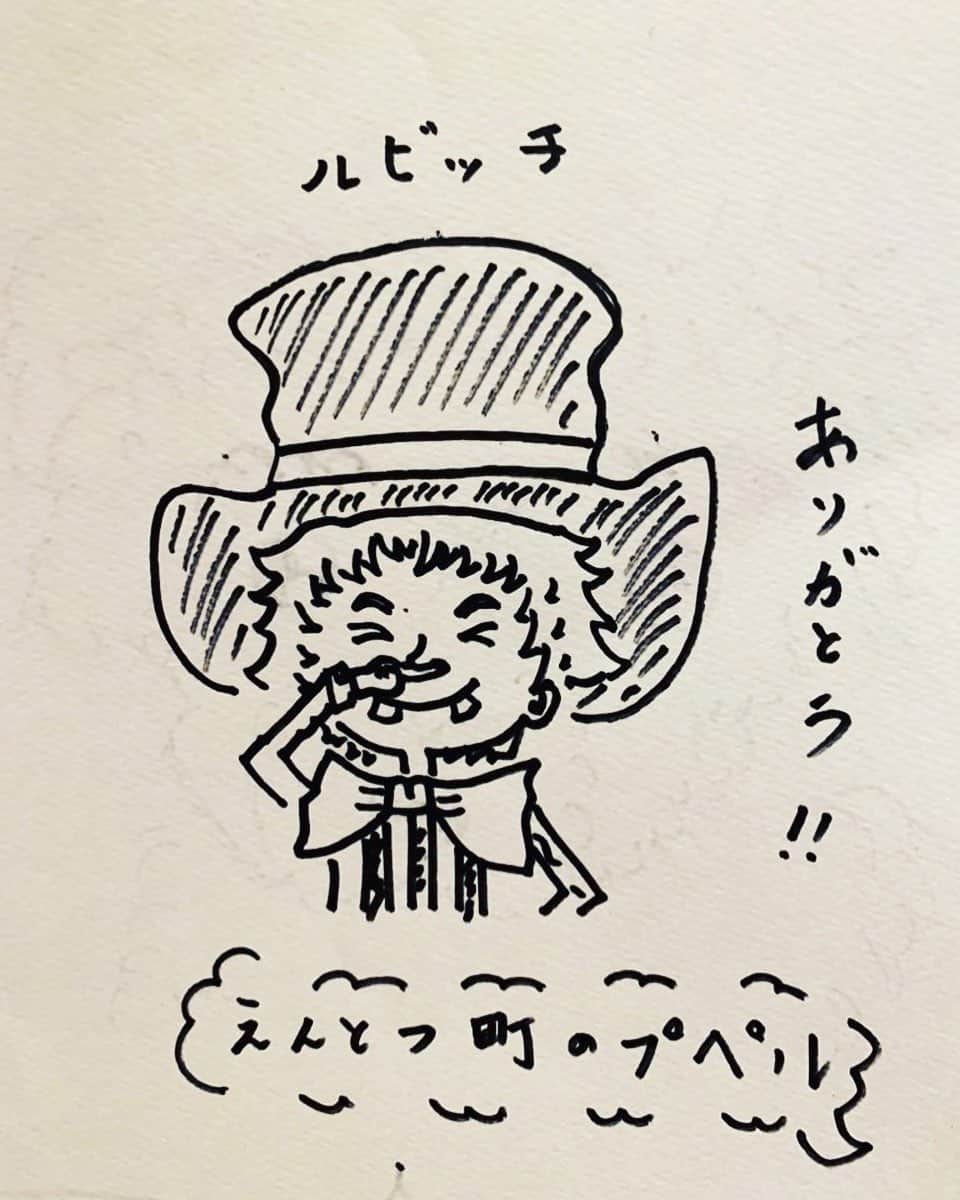 ルビッチ
ありがとう!!
えんとつ町のプペル